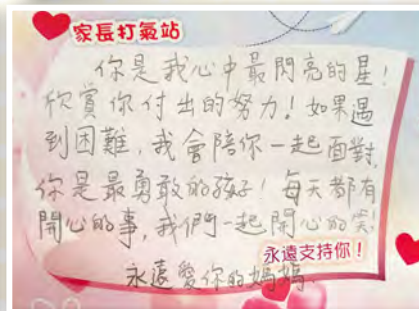 家長打氣站
你是我心中最閃亮的星！
欣賞你付出的努力！如果遇
到困難，我會陪你一起面對，
你是最勇敢的孩子！每天都有
開心的事，我們一起開心的笑！
永遠支持你！
永遠愛你的媽媽